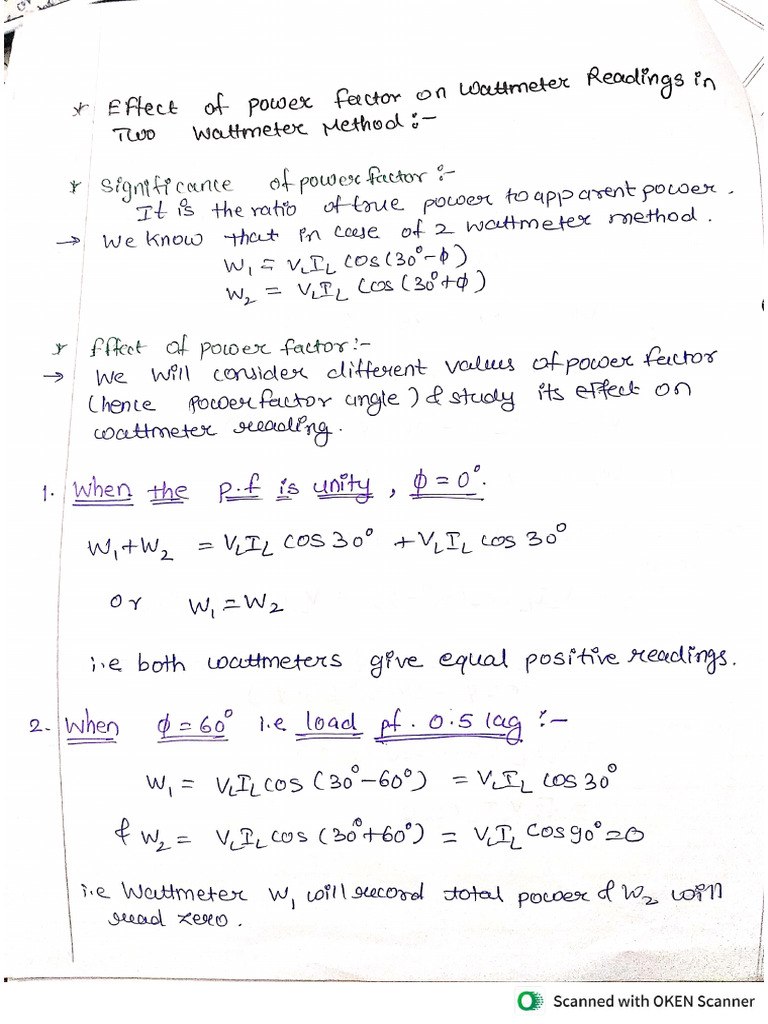 * Effect of power factor on wattmeter Readings in
Two wattmeter Method :-
* Significance of power factor :-
It is the ratio of true power to apparent power.
→ We know that in case of 2 wattmeter method.
W₁ = V_L I_L cos(30°-ϕ)
W₂ = V_L I_L cos(30°+ϕ)
* Effect of power factor :-
→ We will consider different values of power factor
(hence power factor angle) & study its effect on
wattmeter reading.
1. When the p.f is unity, ϕ = 0°.
W₁+W₂ = V_L I_L cos 30° + V_L I_L cos 30°
or W₁ = W₂
i.e both wattmeters give equal positive readings.
2. When ϕ = 60° i.e load pf. 0.5 lag :-
W₁ = V_L I_L cos (30°-60°) = V_L I_L cos 30°
& W₂ = V_L I_L cos (30°+60°) = V_L I_L cos 90° = 0
i.e Wattmeter W₁ will record total power & W₂ will
read zero.
Scanned with OKEN Scanner